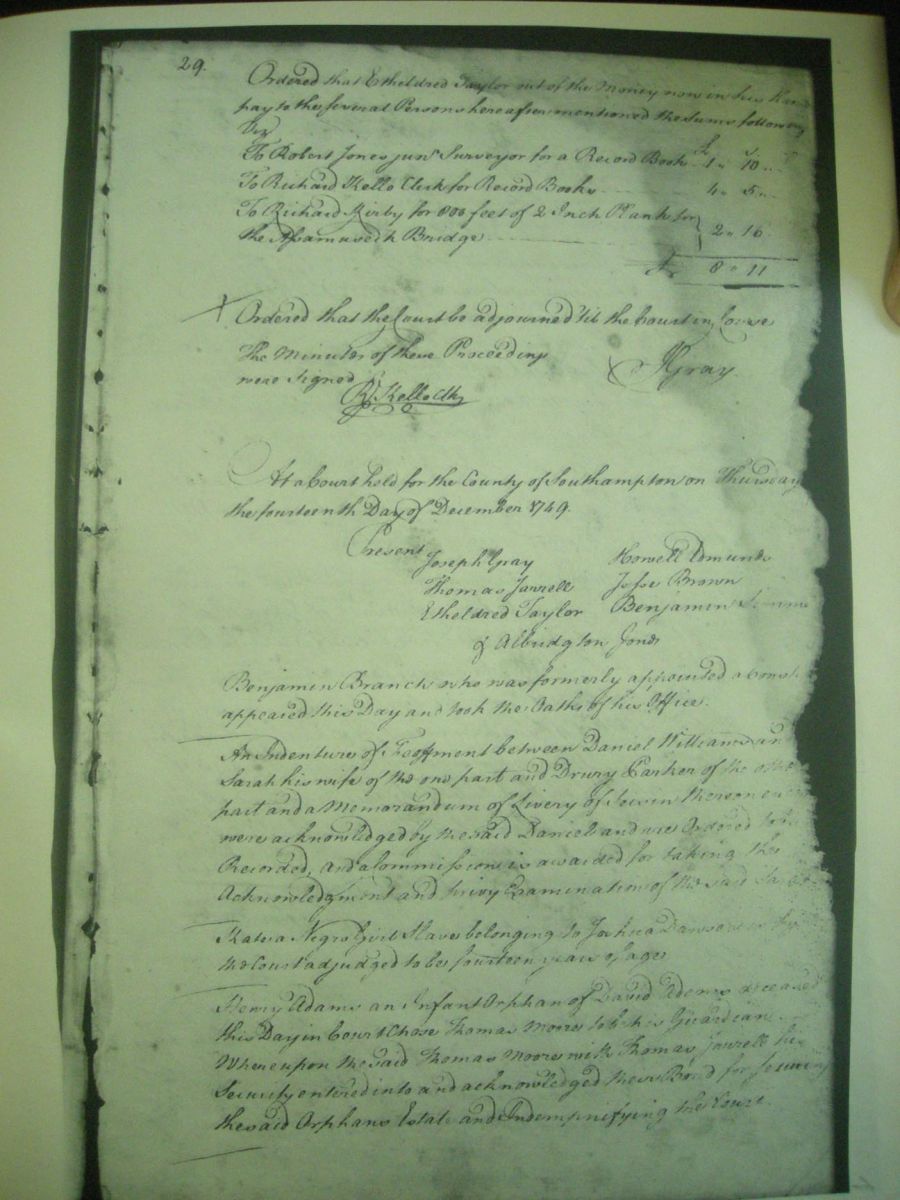 29.
Ordered that Etheldred Taylor out of the Money now in his
pay to the several Persons hereafter mentioned the sums following
Viz
To Robert Jones junr Surveyor for a Record Book 1 " 10
To Richard Kello Clerk for Record Books 4 " 5
To Richard Kirby for 800 feet of 2 Inch Plank for
the Assamuseck Bridge 2 " 16
£ 8 " 11
Ordered that the Court be adjourned 'til the Court in Course
The Minutes of these Proceedings
were signed JGray
R. Kello Clk
At a Court held for the County of Southampton on Thursday
the fourteenth Day of December 1749.
Present
Joseph Gray Howell Edmunds
Thomas Jarrell Jesse Brown
Etheldred Taylor Benjamin
& Albridgton Jones
Benjamin Branch who was formerly appointed a
appeared this Day and took the Oaths of his Office.
An Indenture of Feoffment between Daniel Williams and
Sarah his wife of the one part and Drury Parker of the other
part and a Memorandum of Livery of Seisin thereon
were acknowledged by the said Daniel and are Ordered to be
Recorded, and a Commission is awarded for taking the
Acknowledgment and privy Examination of the said Sarah
Kate a Negro Girl Slave belonging to Joshua Dawson is by
the Court adjudged to be fourteen years of age
Henry Adams an Infant Orphan of David Adams deceased
this Day in Court Chose Thomas Moore to be his Guardian
Whereupon the said Thomas Moore with Thomas Jarrell his
Security entered into and acknowledged their Bond for securing
the said Orphans Estate and Indempnifying the Court.